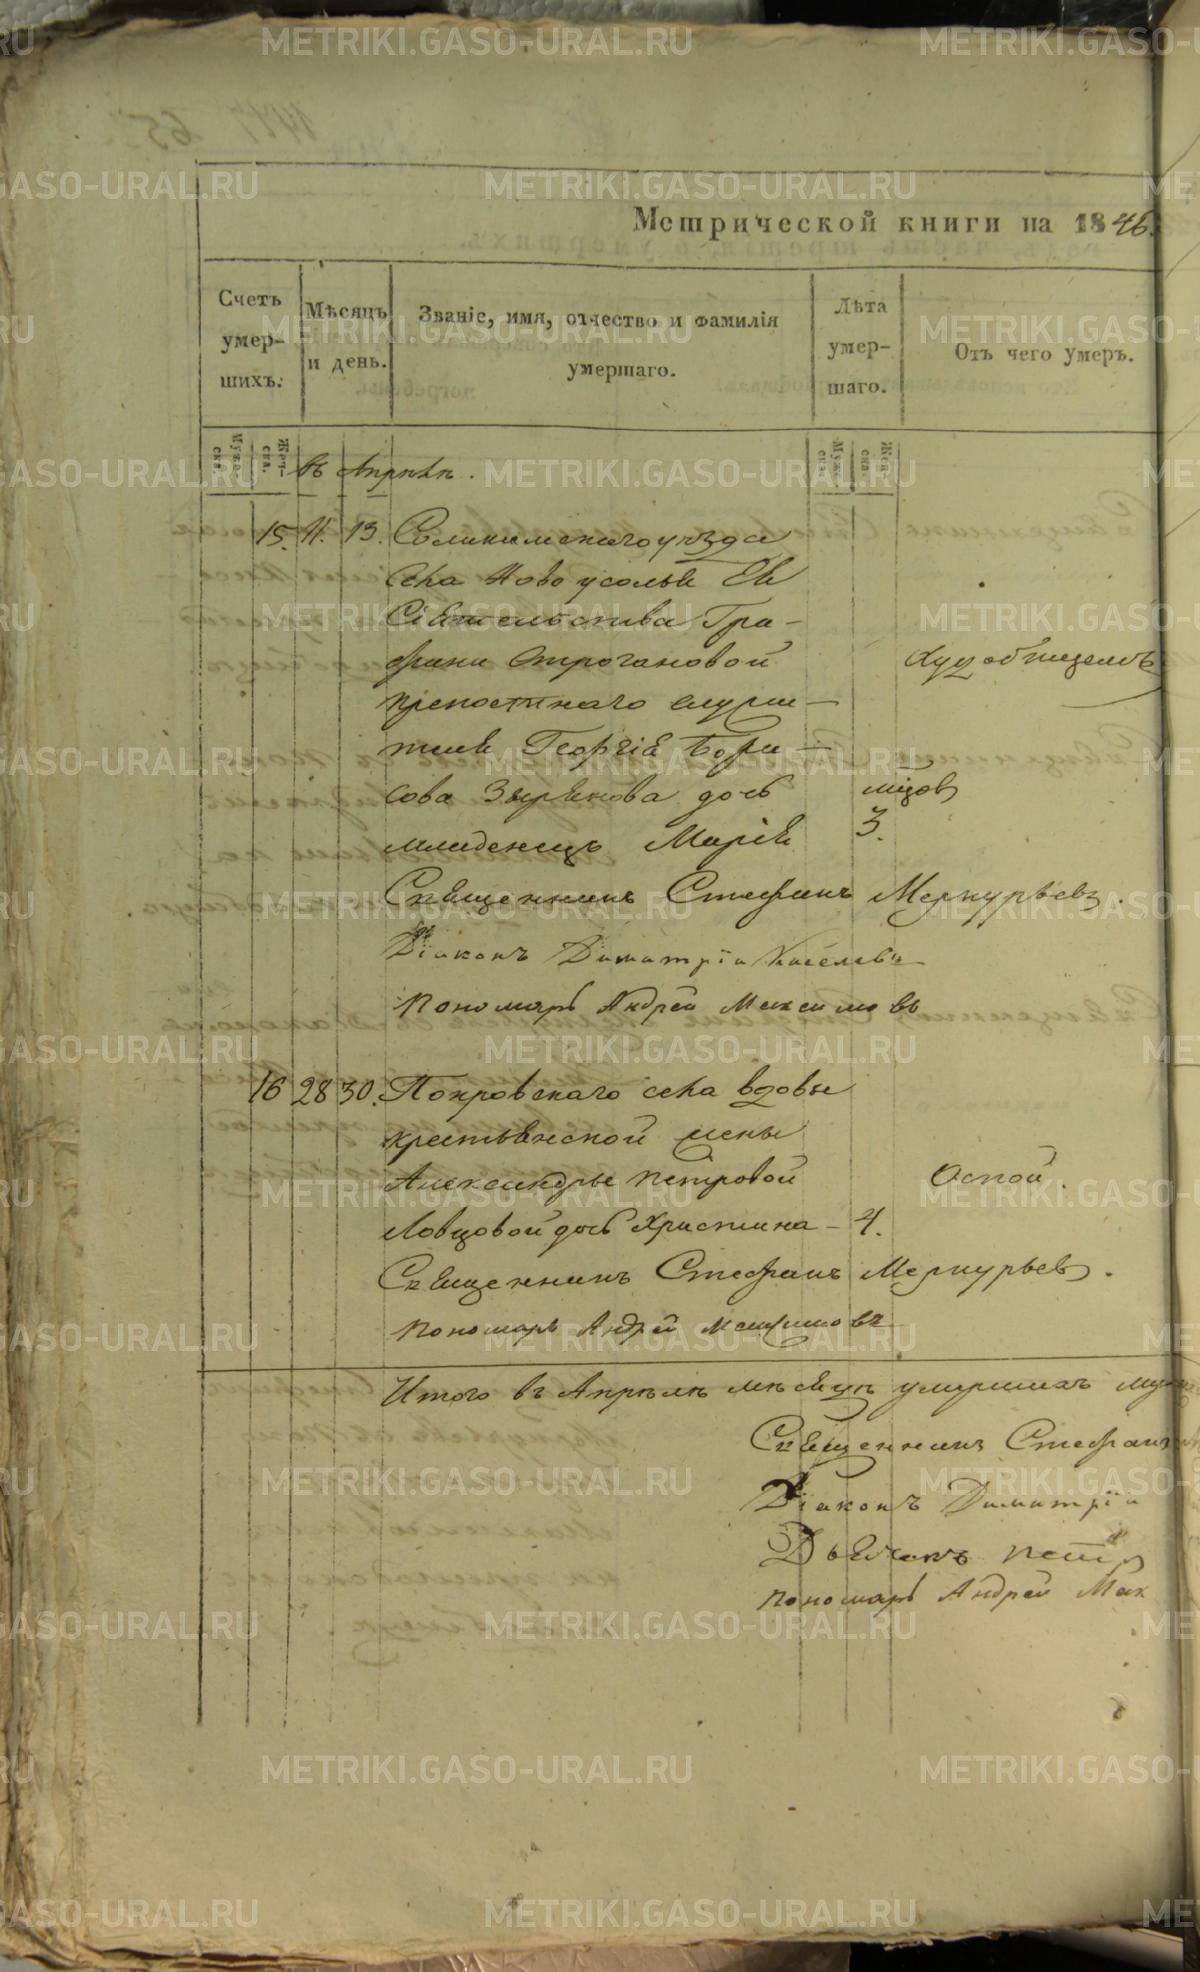 Метрической книги на 1846.
Счетъ умер-шихъ.
Мѣсяцъ и день.
Званіе, имя, отчество и фамилія умершаго.
Лѣта умер-шаго.
Отъ чего умеръ.
Муже-ска.
Жен-ска.
Муже-ска.
Жен-ска.
Въ Апрѣлѣ.
15. 11. 13. Соликамскаго уѣзда
села Новоусолья Ея
Сіятельства Гра-
фини Строгановой
Худобищемъ
крепостнаго служи-
теля Георгія Бори-
сова Зырянова дочь
мцов
младенецъ Марія
3.
Священникъ Стефанъ Меркурьевъ.
Діаконъ Димитрій Киселевъ
Пономарь Андрей Максимовъ
16 28 30. Покровскаго села вдовы
крестьянской жены
Александры Петровой
Оспой.
Ловцовой дочь Христина - 4.
Священникъ Стефанъ Меркурьев.
Пономарь Андрей Максимовъ
Итого въ Апрѣлѣ мѣсяцѣ умершихъ
Священникъ Стефанъ
Діаконъ Димитрій
Дьячекъ Петр
Пономарь Андрей Мак
METRIKI.GASO-URAL.RU